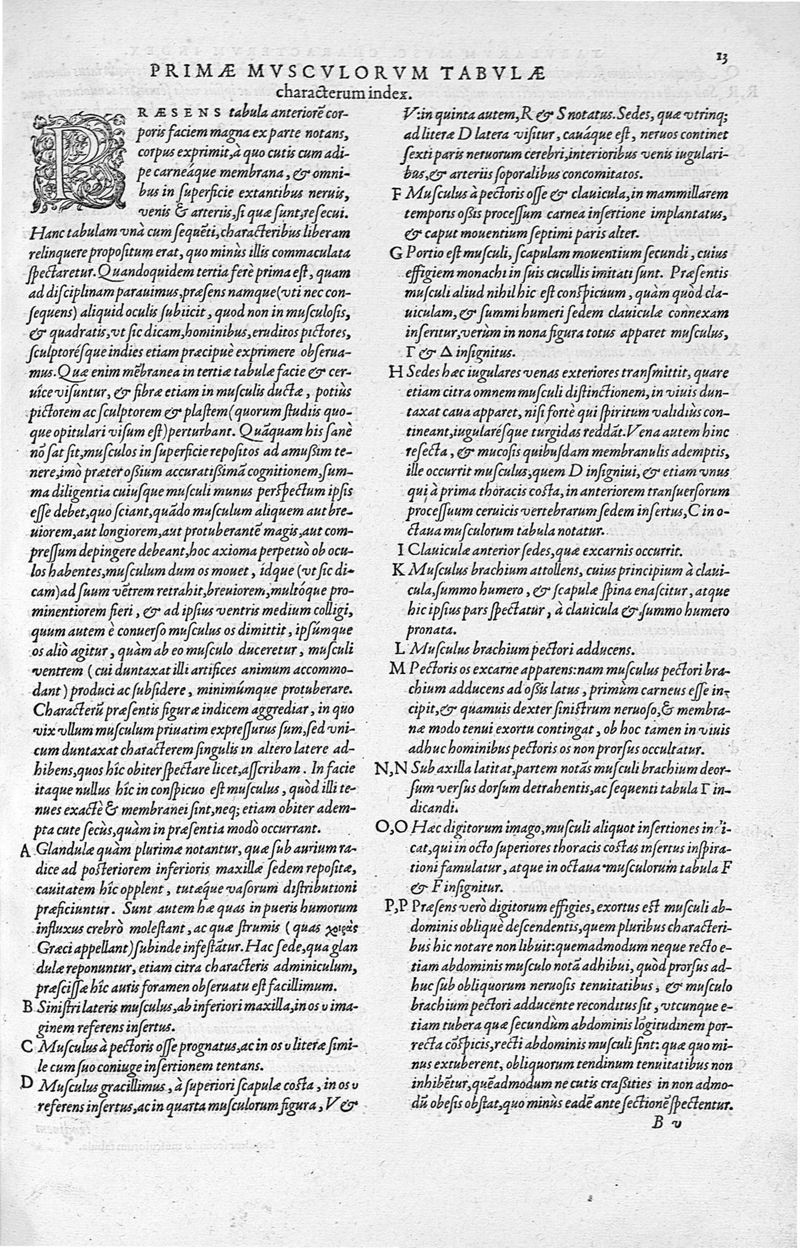 13
PRIMÆ MVSCVLORVM TABVLÆ
characterum index.
PRÆSENS tabula anteriorē cor-
poris faciem magna ex parte notans,
corpus exprimit, à quo cutis cum adi-
pe carneáque membrana, & omni-
bus in superficie extantibus neruis,
venis & arteriis, si quæ sunt, resecui.
Hanc tabulam vnà cum sequēti, characteribus liberam
relinquere propositum erat, quo minùs illis commaculata
spectaretur. Quandoquidem tertia ferè prima est, quam
ad disciplinam parauimus, præsens namque (vti nec con-
sequens) aliquid oculis subiicit, quod non in musculosis,
& quadratis, vt sic dicam, hominibus, eruditos pictores,
sculptorésque indies etiam præcipuè exprimere obserua-
mus. Quæ enim mēbranea in tertiæ tabulæ facie & cer-
uice visuntur, & fibræ etiam in musculis ductæ, potiùs
pictorem ac sculptorem & plastem (quorum studiis quo-
que opitulari visum est) perturbant. Quāquam his sanè
nō sat sit, musculos in superficie repositos ad amussim te-
nere, imò præter ossium accuratissimā cognitionem, sum-
ma diligentia cuiusque musculi munus perspectum ipsis
esse debet, quo sciant, quādo musculum aliquem aut bre-
uiorem, aut longiorem, aut protuberantē magis, aut com-
pressum depingere debeant, hoc axioma perpetuò ob ocu-
los habentes, musculum dum os mouet, idque (vt sic di-
cam) ad suum vētrem retrahit, breuiorem, multóque pro-
minentiorem fieri, & ad ipsius ventris medium colligi,
quum autem è conuerso musculus os dimittit, ipsúmque
os aliò agitur, quàm ab eo musculo duceretur, musculi
ventrem (cui duntaxat illi artifices animum accommo-
dant) produci ac subsidere, minimúmque protuberare.
Characterū præsentis figuræ indicem aggrediar, in quo
vix vllum musculum priuatim expressurus sum, sed vni-
cum duntaxat characterem singulis in altero latere ad-
hibens, quos hîc obiter spectare licet, ascribam. In facie
itaque nullus hîc in conspicuo est musculus, quòd illi te-
nues exactè & membranei sint, neq; etiam obiter adem-
pta cute secùs, quàm in præsentia modò occurrant.
A Glandulæ quàm plurimæ notantur, quæ sub aurium ra-
dice ad posteriorem inferioris maxillæ sedem repositæ,
cauitatem hîc opplent, tutæque vasorum distributioni
præficiuntur. Sunt autem hæ quas in pueris humorum
influxus crebrò molestant, ac quæ strumis (quas χοιράς
Græci appellant) subinde infestātur. Hac sede, qua glan
dulæ reponuntur, etiam citra characteris adminiculum,
præscissæ hîc auris foramen obseruatu est facillimum.
B Sinistri lateris musculus, ab inferiori maxilla, in os υ ima-
ginem referens insertus.
C Musculus à pectoris osse prognatus, ac in os υ literæ simi-
le cum suo coniuge insertionem tentans.
D Musculus gracillimus, à superiori scapulæ costa, in os υ
referens insertus, ac in quarta musculorum figura, V &
V: in quinta autem, R & S notatus. Sedes, quæ vtrinq;
ad literæ D latera visitur, cauáque est, neruos continet
sexti paris neruorum cerebri, interioribus venis iugulari-
bus, & arteriis soporalibus concomitatos.
F Musculus à pectoris osse & clauicula, in mammillarem
temporis ossis processum carnea insertione implantatus,
& caput mouentium septimi paris alter.
G Portio est musculi, scapulam mouentium secundi, cuius
effigiem monachi in suis cucullis imitati sunt. Præsentis
musculi aliud nihil hîc est conspicuum, quàm quòd cla-
uiculam, & summi humeri sedem clauiculæ connexam
inseritur, verùm in nona figura totus apparet musculus,
Γ & Δ insignitus.
H Sedes hæc iugulares venas exteriores transmittit, quare
etiam citra omnem musculi distinctionem, in viuis dun-
taxat caua apparet, nisi fortè qui spiritum validiùs con-
tineant, iugularésque turgidas reddāt. Vena autem hinc
resecta, & mucosis quibusdam membranulis ademptis,
ille occurrit musculus, quem D insigniui, & etiam vnus
qui à prima thoracis costa, in anteriorem transuersorum
processuum ceruicis vertebrarum sedem insertus, C in o-
ctaua musculorum tabula notatur.
I Clauiculæ anterior sedes, quæ excarnis occurrit.
K Musculus brachium attollens, cuius principium à claui-
cula, summo humero, & scapulæ spina enascitur, atque
hic ipsius pars spectatur, à clauicula & summo humero
pronata.
L Musculus brachium pectori adducens.
M Pectoris os excarne apparens: nam musculus pectori bra-
chium adducens ad ossis latus, primùm carneus esse in-
cipit, & quamuis dexter sinistrum neruoso, & membra-
næ modo tenui exortu contingat, ob hoc tamen in viuis
adhuc hominibus pectoris os non prorsus occultatur.
N, N Sub axilla latitat, partem notās musculi brachium deor-
sum versus dorsum detrahentis, ac sequenti tabula Γ in-
dicandi.
O, O Hæc digitorum imago, musculi aliquot insertiones indi-
cat, qui in octo superiores thoracis costas insertus inspira-
tioni famulatur, atque in octaua musculorum tabula F
& F insignitur.
P, P Præsens verò digitorum effigies, exortus est musculi ab-
dominis obliquè descendentis, quem pluribus characteri-
bus hîc notare non libuit: quemadmodum neque recto e-
tiam abdominis musculo notā adhibui, quòd prorsus ad-
huc sub obliquorum neruosis tenuitatibus, & musculo
brachium pectori adducente reconditus sit, vtcunque e-
tiam tubera quæ secundùm abdominis lōgitudinem por-
recta cōspicis, recti abdominis musculi sint: quæ quo mi-
nus extuberent, obliquorum tendinum tenuitatibus non
inhibētur, quēadmodum ne cutis crassities in non admo-
dū obesis obstat, quo minùs eadē ante sectionē spectentur.
B v